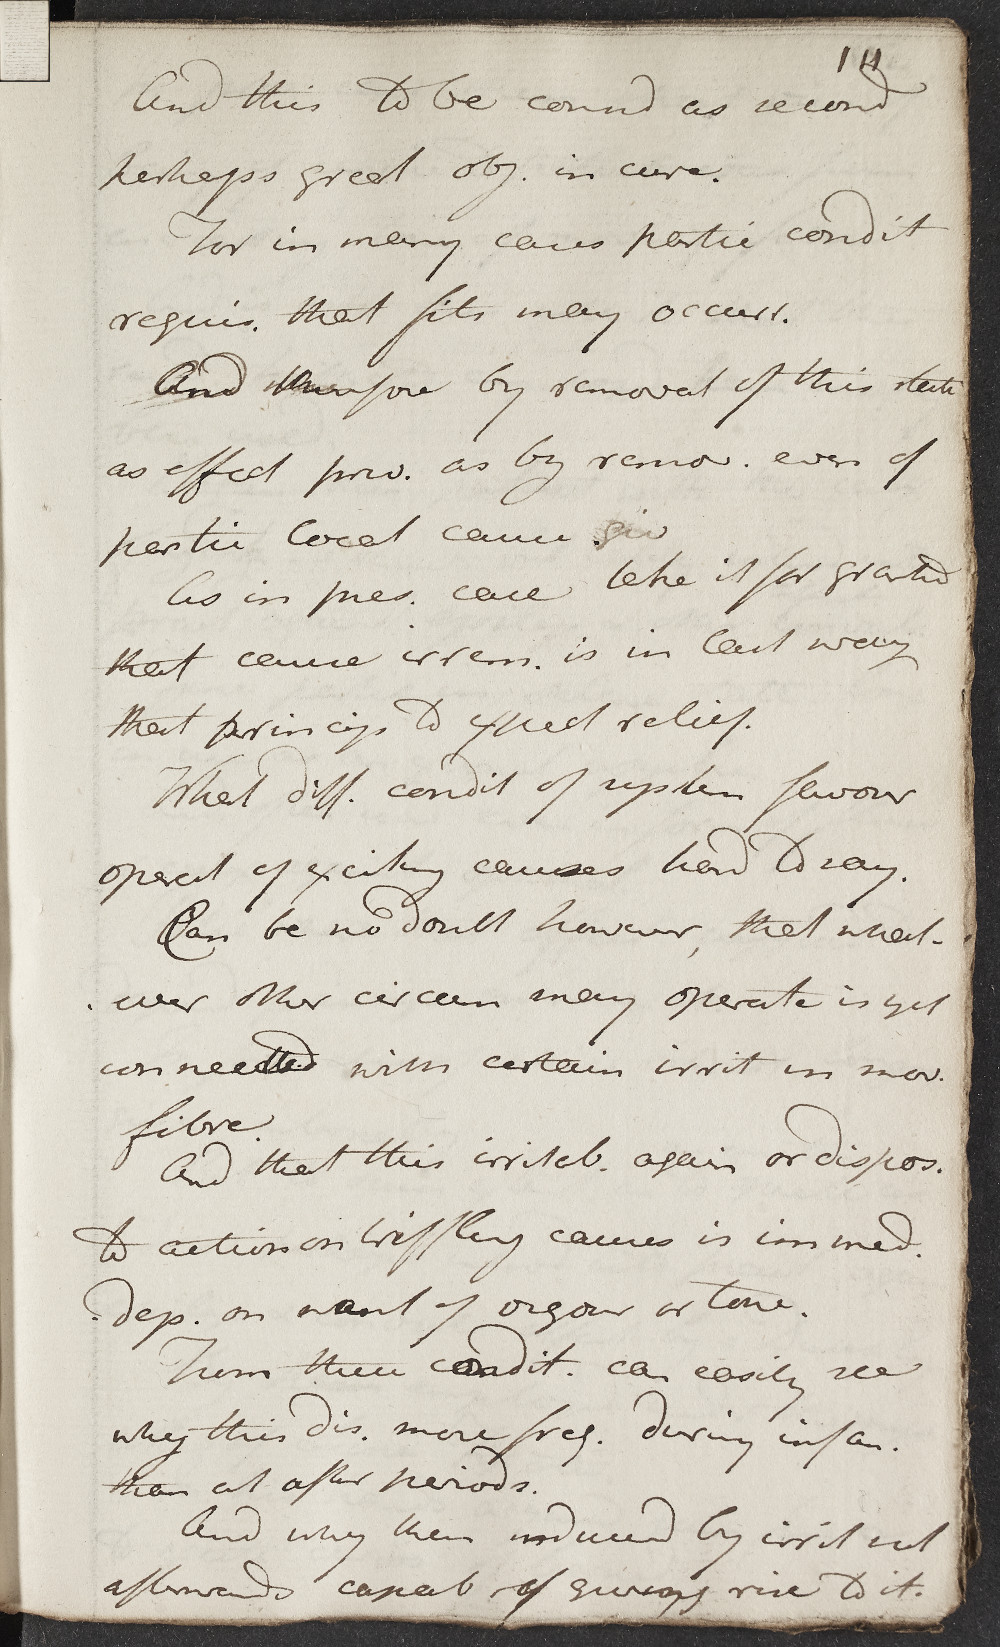 111
And this to be consd as second
perhaps great obj. in cure.
For in many cases partic condit
requis. that fits may occurr.
And therefore by removal of this state
as effect prev. as by remov. even of
partic local cause
As in pres. case take it for granted
that cause irrem. is in last way
that princip to expect relief.
What diff. condit of system favour
operat of exciting causes hard to say.
Can be no doubt however, that what-
ever other circum may operate is yet
connected with certain irrit in mov.
fibre.
And that this irritab. again or dispos.
to action on triffling causes is immed.
dep. on want of vigour or tone.
From these condit. can easily see
why this dis. more freq. during infan.
than at after periods.
And why then induced by irrit not
afterwards capab of giving rise to it.